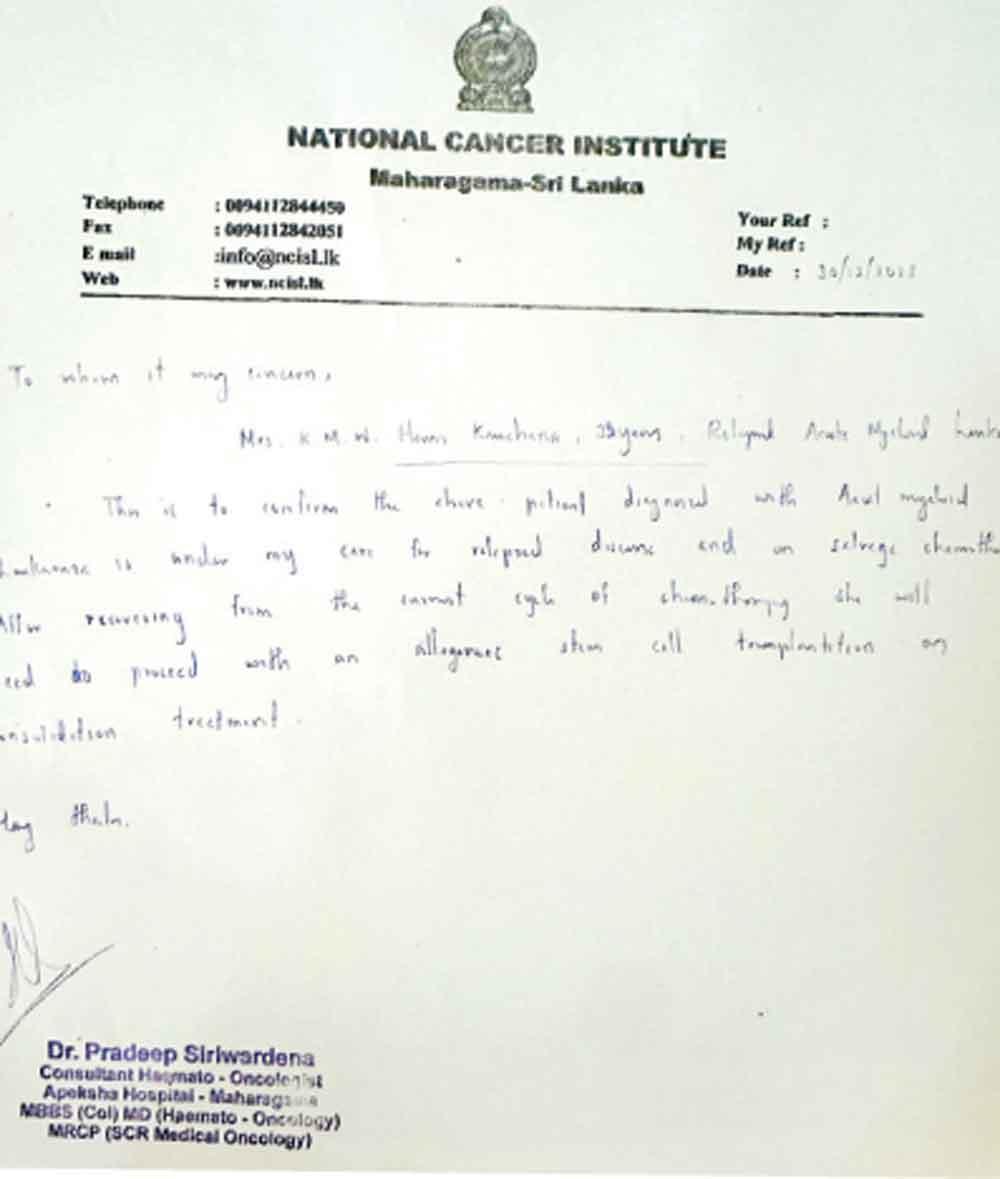 NATIONAL CANCER INSTITUTE
Maharagama-Sri Lanka
Telephone : 0094112844450
Fax : 0094112842051
E mail :info@ncisl.lk
Web : www.ncisl.lk
Your Ref :
My Ref :
Date : 30/12/
To whom it may concern,
Mrs. K. M. W. Kanchana, years, Relapsed Acute Myeloid
This is to confirm the above patient diagnosed with myeloid
is under my care for relapsed disease and on salvage
After recovering from the current cycle of chemotherapy she will
eed to proceed with an allogeneic stem cell transplantation as
onsolidation treatment.
Dr. Pradeep Siriwardena
Consultant Haemato - Oncologist
Apeksha Hospital - Maharagama
MBBS (Col) MD (Haemato - Oncology)
MRCP (SCR Medical Oncology)